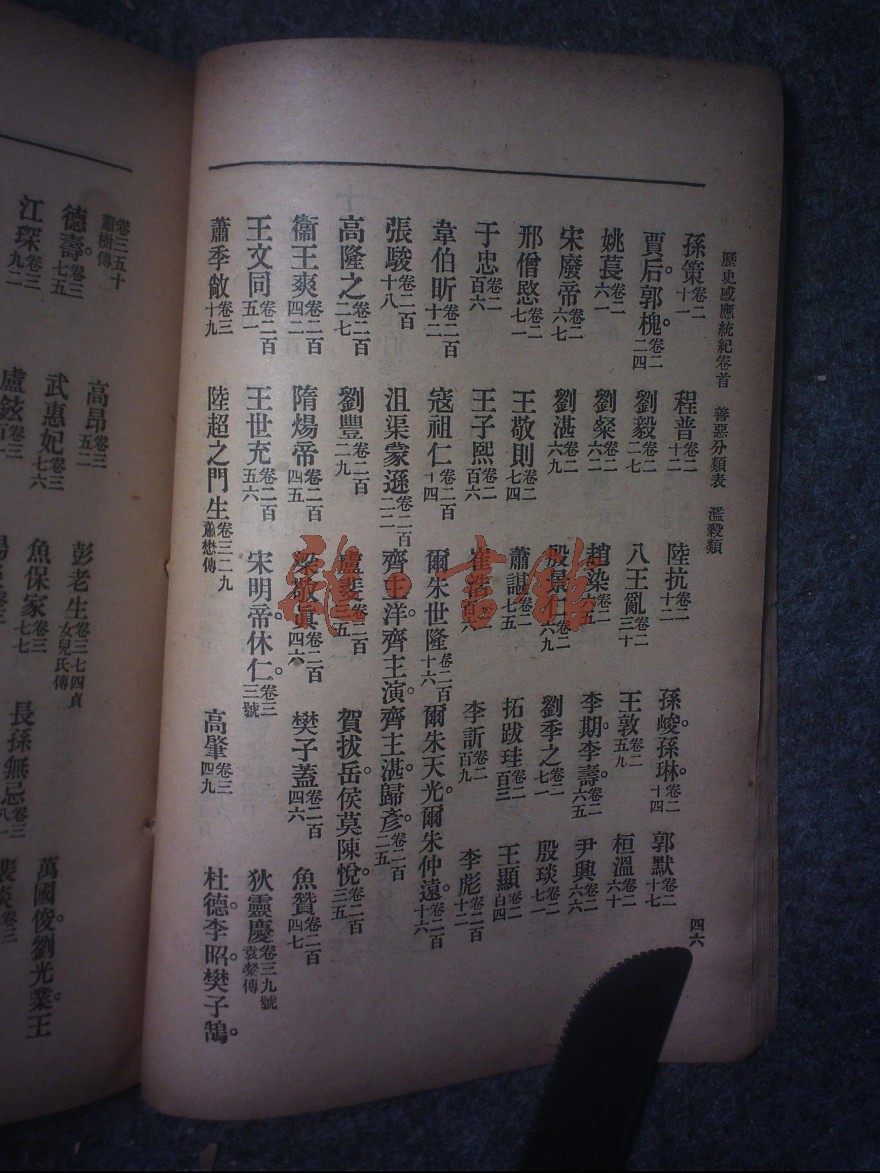 歷史感應統紀卷首　善惡分類表　濫殺類
四六
孫策卷二十一　程普卷二十二　陸抗卷二十二　孫峻。孫琳。卷二十四　郭默卷二十七
賈后。郭槐。卷二二四　劉毅卷二二七　八王亂卷二三十　王敦卷二五九　桓溫卷二六十
姚萇卷二六一　劉粲卷二六二　趙染卷二　李期。李壽。卷二六五　尹興卷二六六
宋廢帝卷二六七　劉湛卷二六九　殷景　卷二六九　劉季之卷二七一　殷琰卷二七一
邢僧愍卷二七一　王敬則卷二七四　蕭諶卷二七五　拓跋珪卷二百三　王顯卷二百四
于忠卷二百六　王子熙卷二百六　崔浩　李訢卷二百九　李彪卷二百十二
韋伯昕卷二百十二　寇祖仁卷二百十四　爾朱世隆卷二百十六　爾朱天光。爾朱仲遠。卷二百十六
張駿卷二百十八　沮渠蒙遜卷二百二二　齊主洋。齊主演。齊主湛。歸彥。卷二百二五
高隆之卷二百二七　劉豐卷二百二九　盧斐卷二百三五　賀拔岳。侯莫陳悅。卷二百三五
衞王爽卷二百四二　隋煬帝卷二百四五　梁敬真卷二百四六　樊子蓋卷二百四六　魚贊卷二百四七
王文同卷二百五一　王世充卷二百五六　宋明帝。休仁。卷三三號　狄靈慶卷三九號袁粲傳
蕭季敞卷三十九　陸超之門生卷三二九蕭懋傳　高肇卷三四九　杜德。李昭。樊子鵠。
卷三五十蕭樹傳　高昂卷三五二　彭老生卷三七四貞女兒氏傳　萬國俊。劉光業。王
德壽。卷三七五　武惠妃卷三七六　魚保家卷三七七　長孫無忌卷三八一
江琛卷三九二　盧鉉卷三